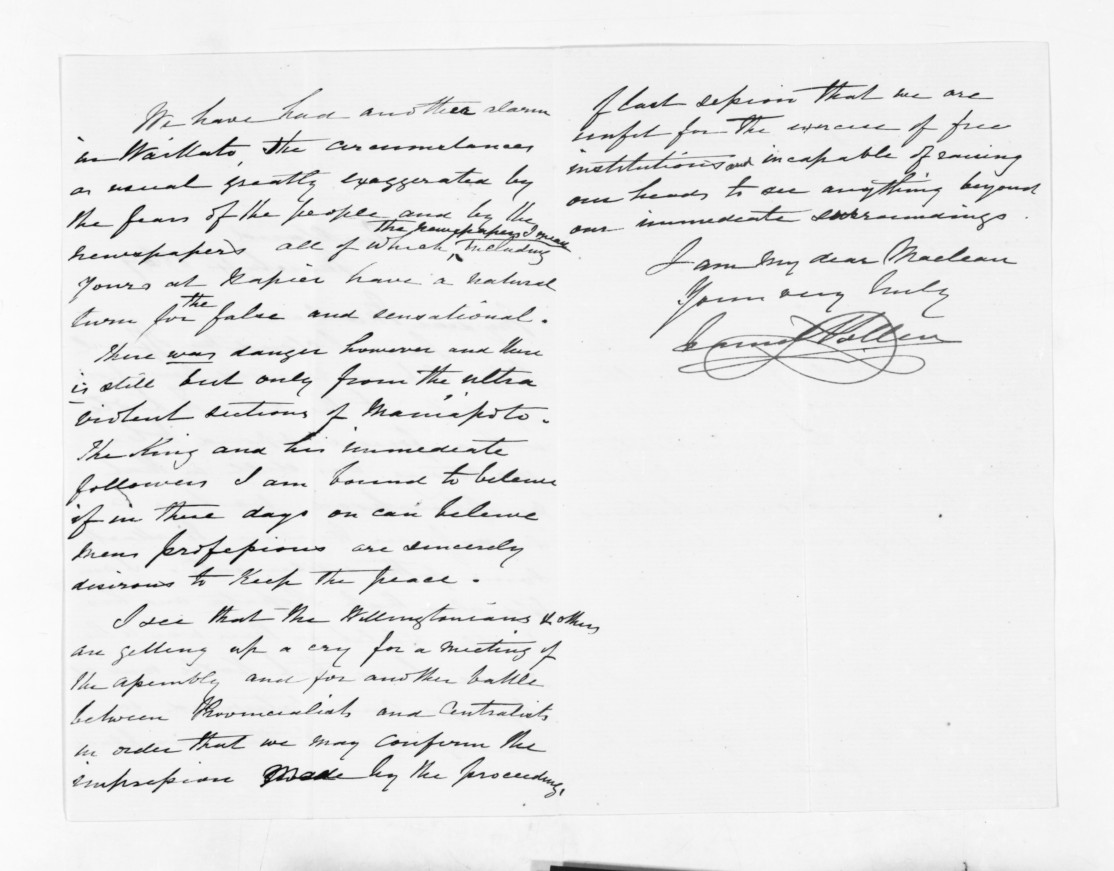 We have had another alarm
in Waikato, the circumstances
as usual greatly exaggerated by
the fears of the people and by the
newspapers all of which, the newspapers I mean including
yours at Napier have a natural
turn for the false and sensational.
There was danger however and there
is still but only from the ultra
violent sections of Maniapoto.
The King and his immediate
followers I am bound to believe
if in these days on can believe
mens professions are sincerely
desirous to keep the peace.
I see that the Wellingtonians & others
are getting up a cry for a meeting of
the assembly and for another battle
between Provincialists and Centralists
in order that we may confirm the
impression made by the proceedings
of last session that we are
unfit for the exercise of free
institutions and incapable of raising
our heads to see anything beyond
our immediate surroundings.
I am My dear Maclean
Yours very truly
Daniel Pollen